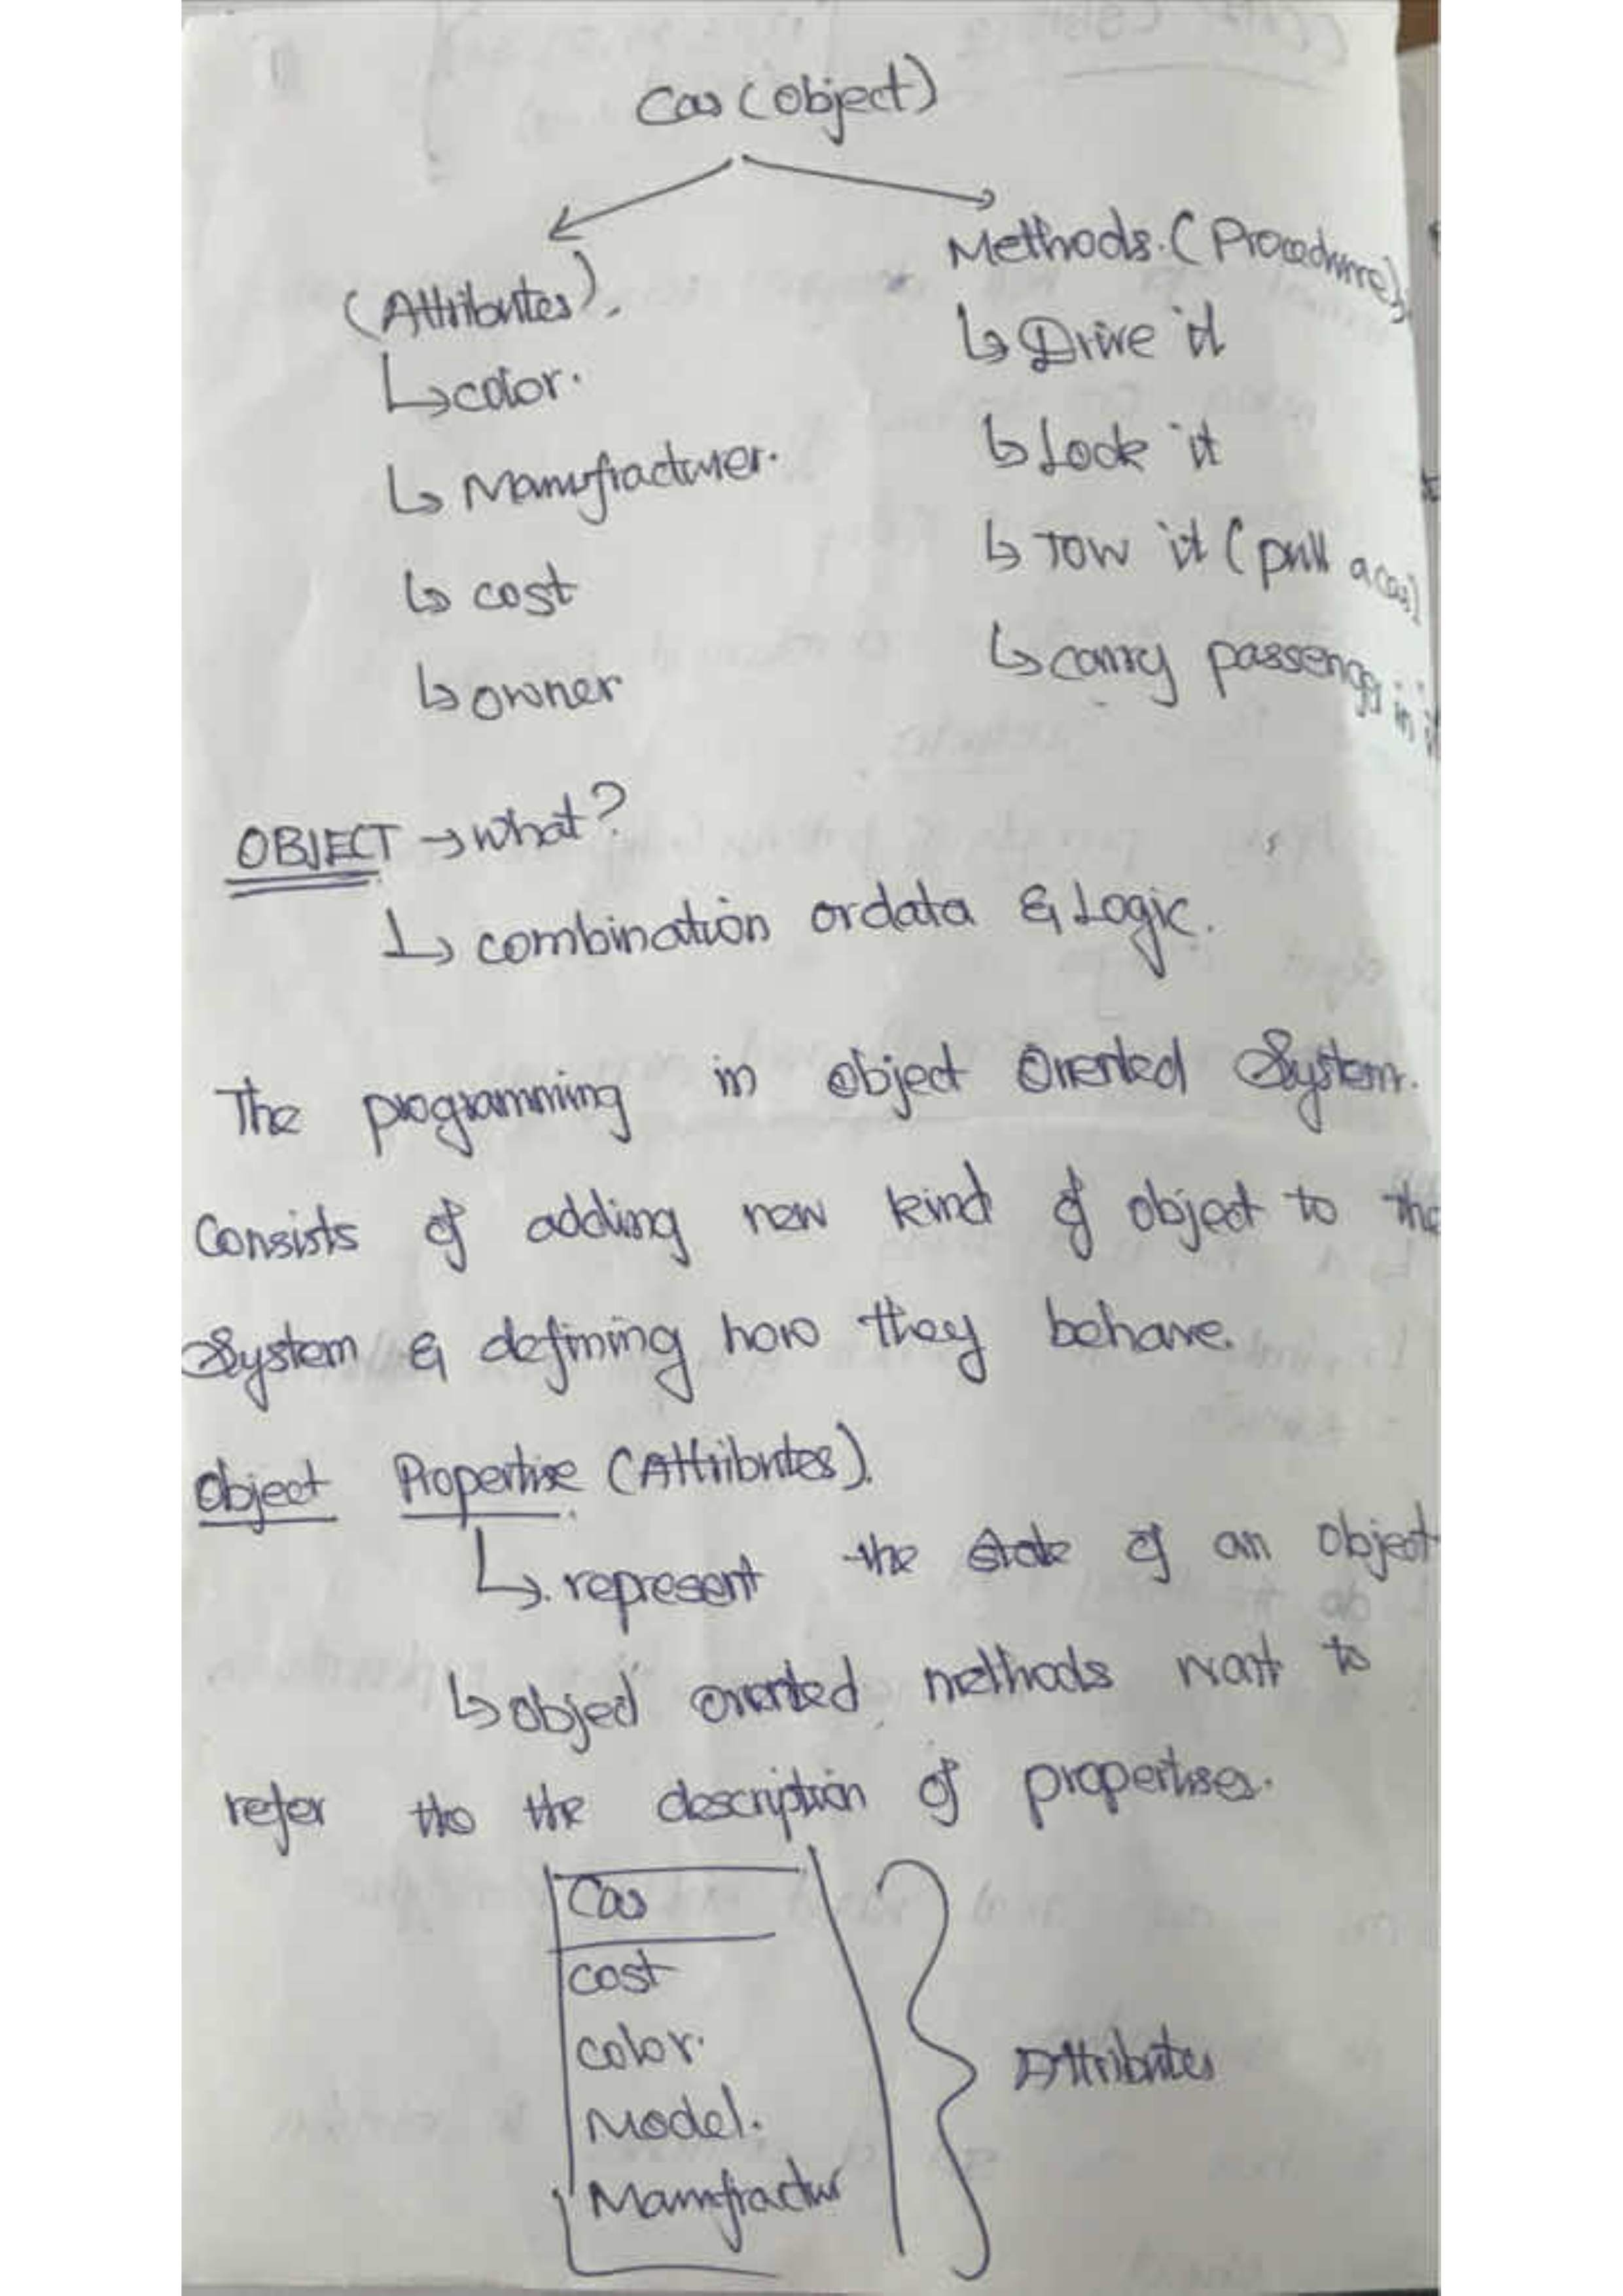 Car (object)
(Attributes).
Methods. (Procedure).
↳ color.
↳ Drive it
↳ Manufracturer.
↳ Lock it
↳ cost
↳ Tow it (pull a car)
↳ owner
↳ carry passenger in it
OBJECT → what?
↳ combination or data & Logic.
The programming in object Oriented System.
Consists of adding new kind of object to the
System & defining how they behave.
Object Propertise (Attributes).
↳ represent the state of an object
↳ object oriented methods want to
refer tho the description of propertises.
Car
cost
color.
Model.
Attributes
Manufractur